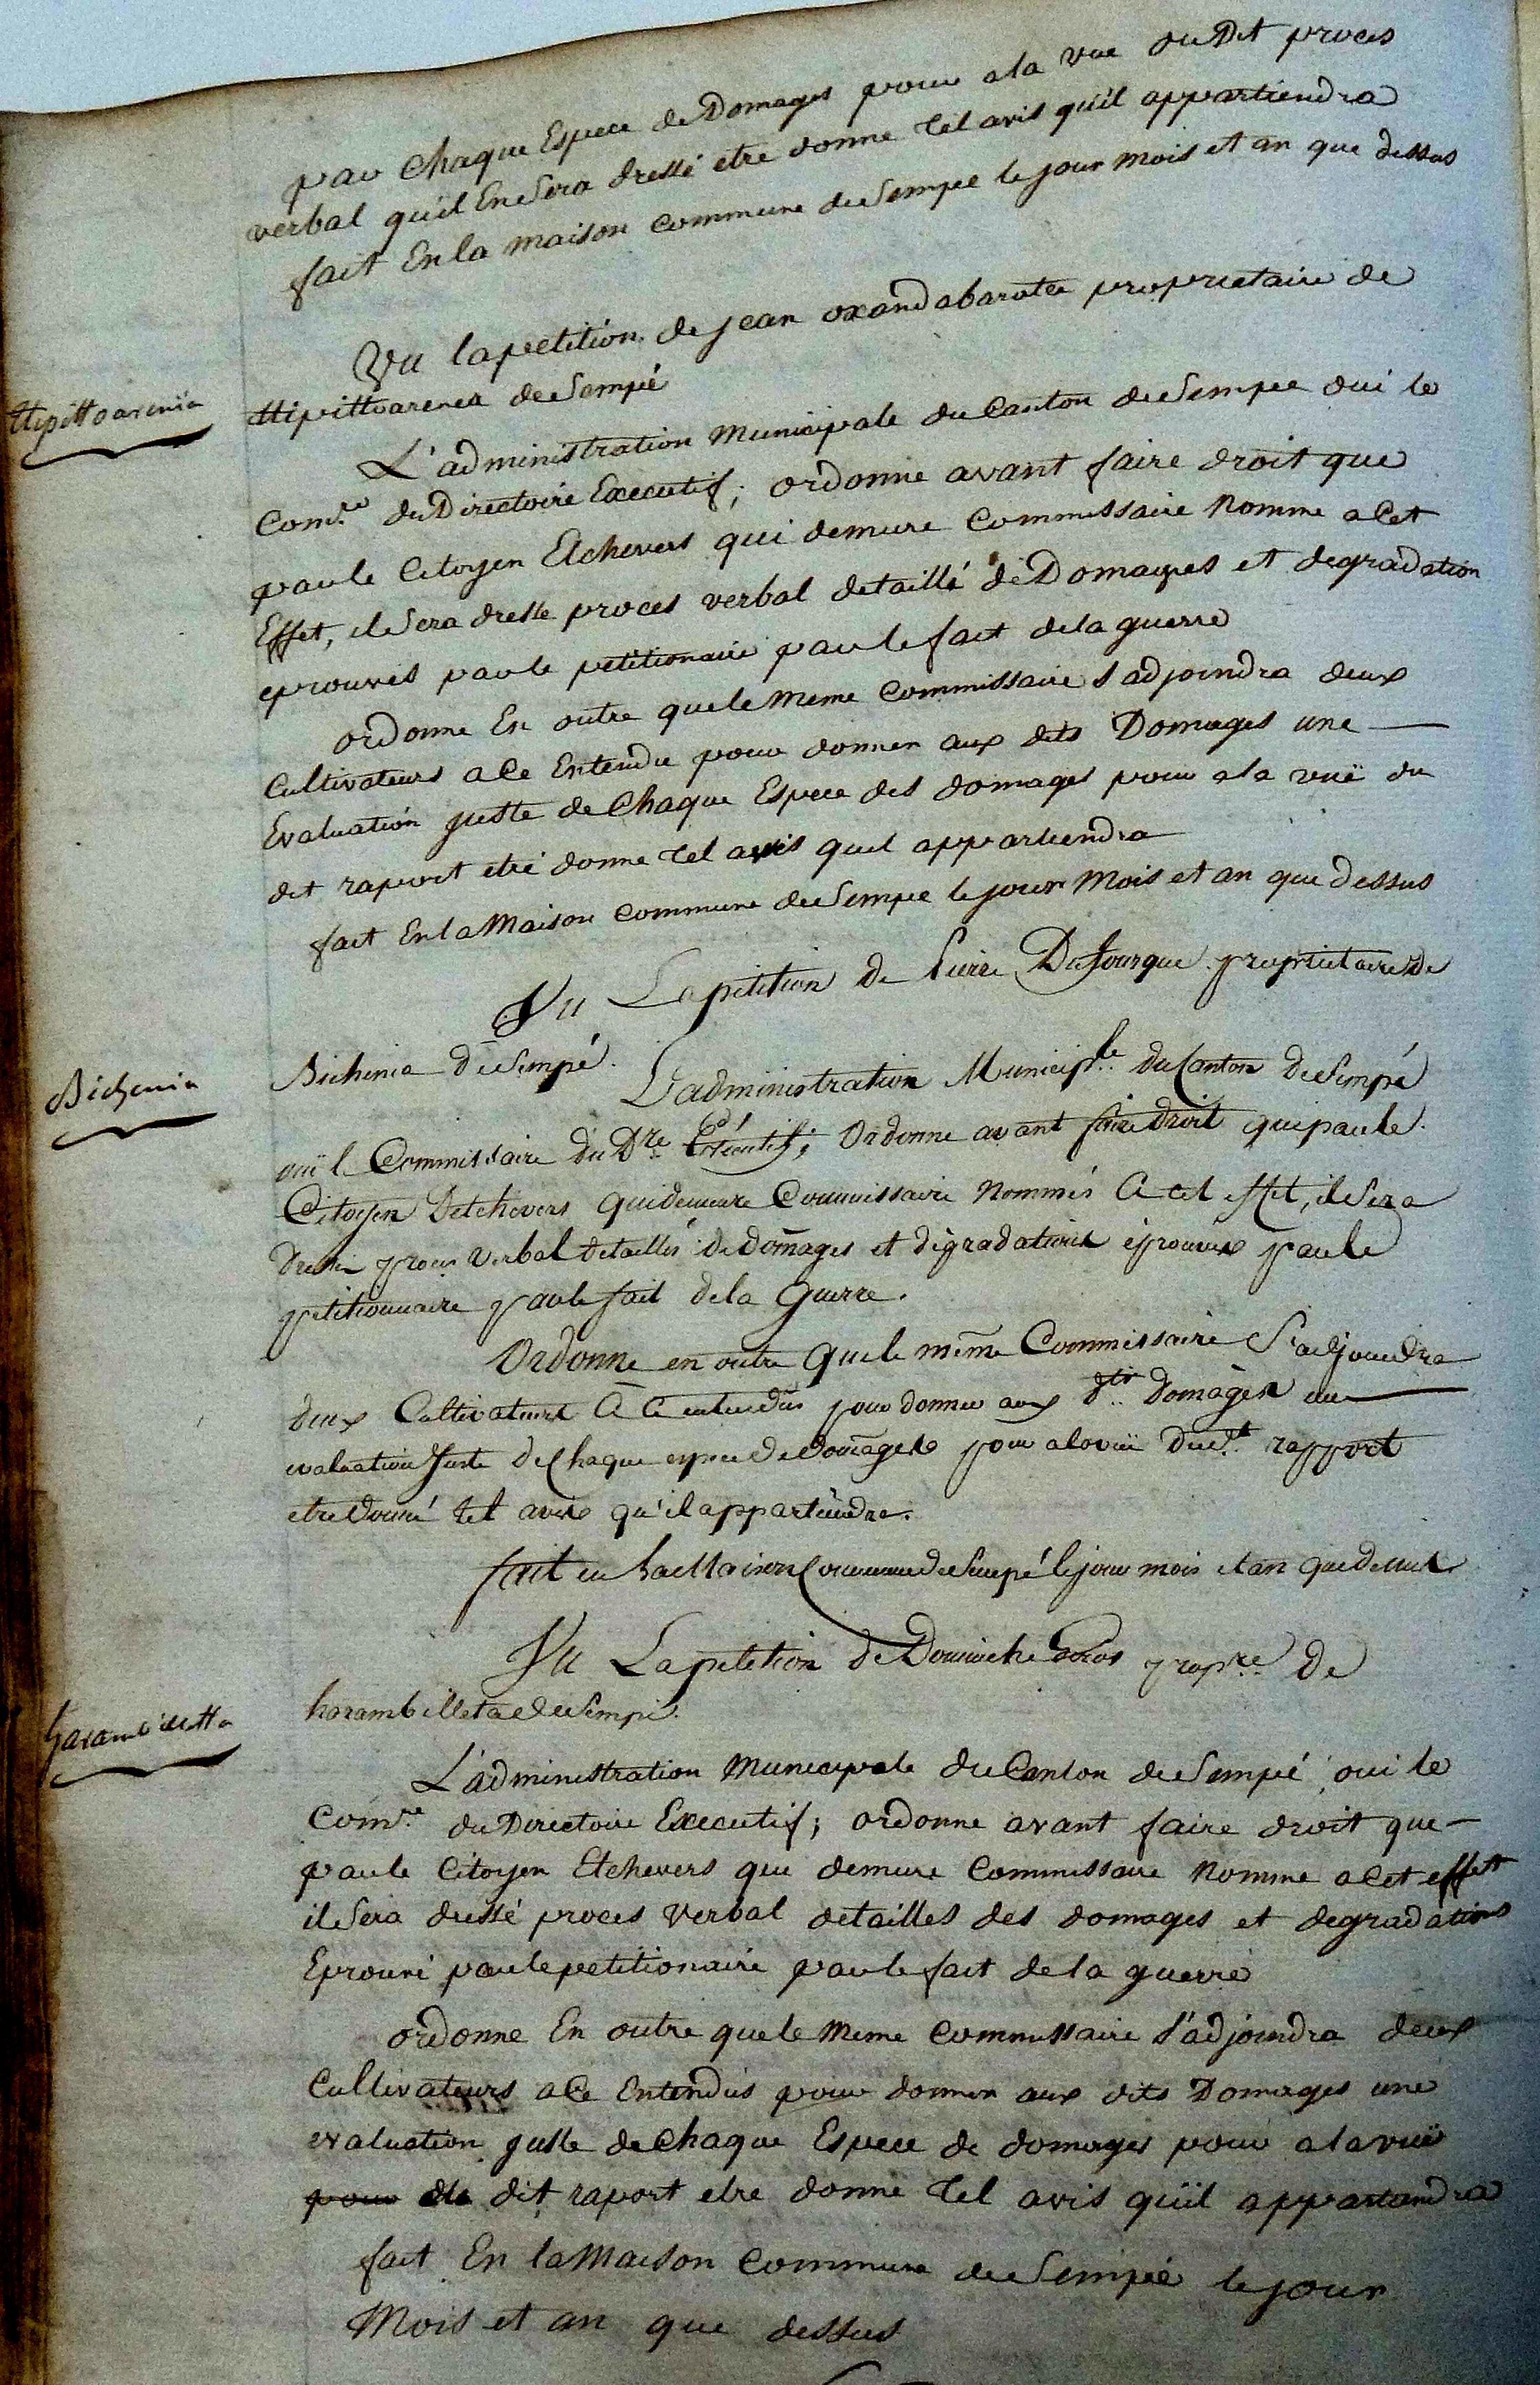 par Chaque Espece de Domages pour a la vue du Dit proces
verbal qu'il En Sera dressé etre donne tel avis qu'il appartiendra
fait En la maison commune de Sempee le jour mois et an que dessus
Vu la petition de jean oxandabaratce proprietaire de
ttipittoarenea de Sempé
ttipittoarenia
L'administration municipale du Canton de Sempee oui le
Com.re du Directoire Executif; ordonne avant faire droit que
par le Citoyen Etchevers qui demure Commissaire Nomme a Cet
Effet, il Sera dresse proces verbal detaillé de Domages et degradation
eprouvés par le petitionaire par le fait de la guerre
ordonne En outre que le Meme Commissaire s adjoindra deux
Cultivateurs a Ce Entendu pour donner aux dits Domages une
Evaluation juste de Chaque Espece des domages pour a la vuë du
dit raport etré donne tel avis quil appartiendra
fait En la Maison commune de Sempee le jour Mois et an que dessus
Vu La petition de Pierre Dufourque proprietaire de
Bichenia de Sempé.
Bichenia
L'administration Municip.le du Canton de Sempé
ouï l Commissaire du D.re Exécutif; Ordonne avant faire droit que par le
Citoyen Detchevers qui demeure Commissaire Nommés A cet effet, il Sera
dressé proces verbal detaillés de domages et dégradations éprouvés par le
petitionnaire par le fait de la Guerre.
Ordonne en outre que le même Commissaire S'adjoindra
deux Cultivateurs A Ce entendus pour donner aux d.ts Domages une
evaluation Juste de Chaque espece de Domages pour a la vuë du d.t rapport
etre donné tel avis qu'il appartiendra.
fait en La Maison Commune de Sempé le jour mois et an que dessus
Vu La petition de Dominche prop.re de
harambilleta de Sempé.
harambilletta
L'administration Municipale du Canton de Sempé oui le
Com.re du Directoire Executif; ordonne avant faire droit que
par le Citoyen Etchevers qui demure Commissaire Nomme a Cet effet
il Sera dressé proces verbal detailles des domages et degradations
Eprouvé par le petitionaire par le fait de la guerre
ordonne En outre que le Meme Commissaire s'adjoindra deux
Cultivateurs a Ce Entendus pour donner aux dits Domages une
evaluation juste de Chaque Espece de domages pour a la vuë
pour du dit raport etre donne tel avis qu'il appartiendra
fait En la Maison Commune de Sempé le jour
Mois et an que dessus